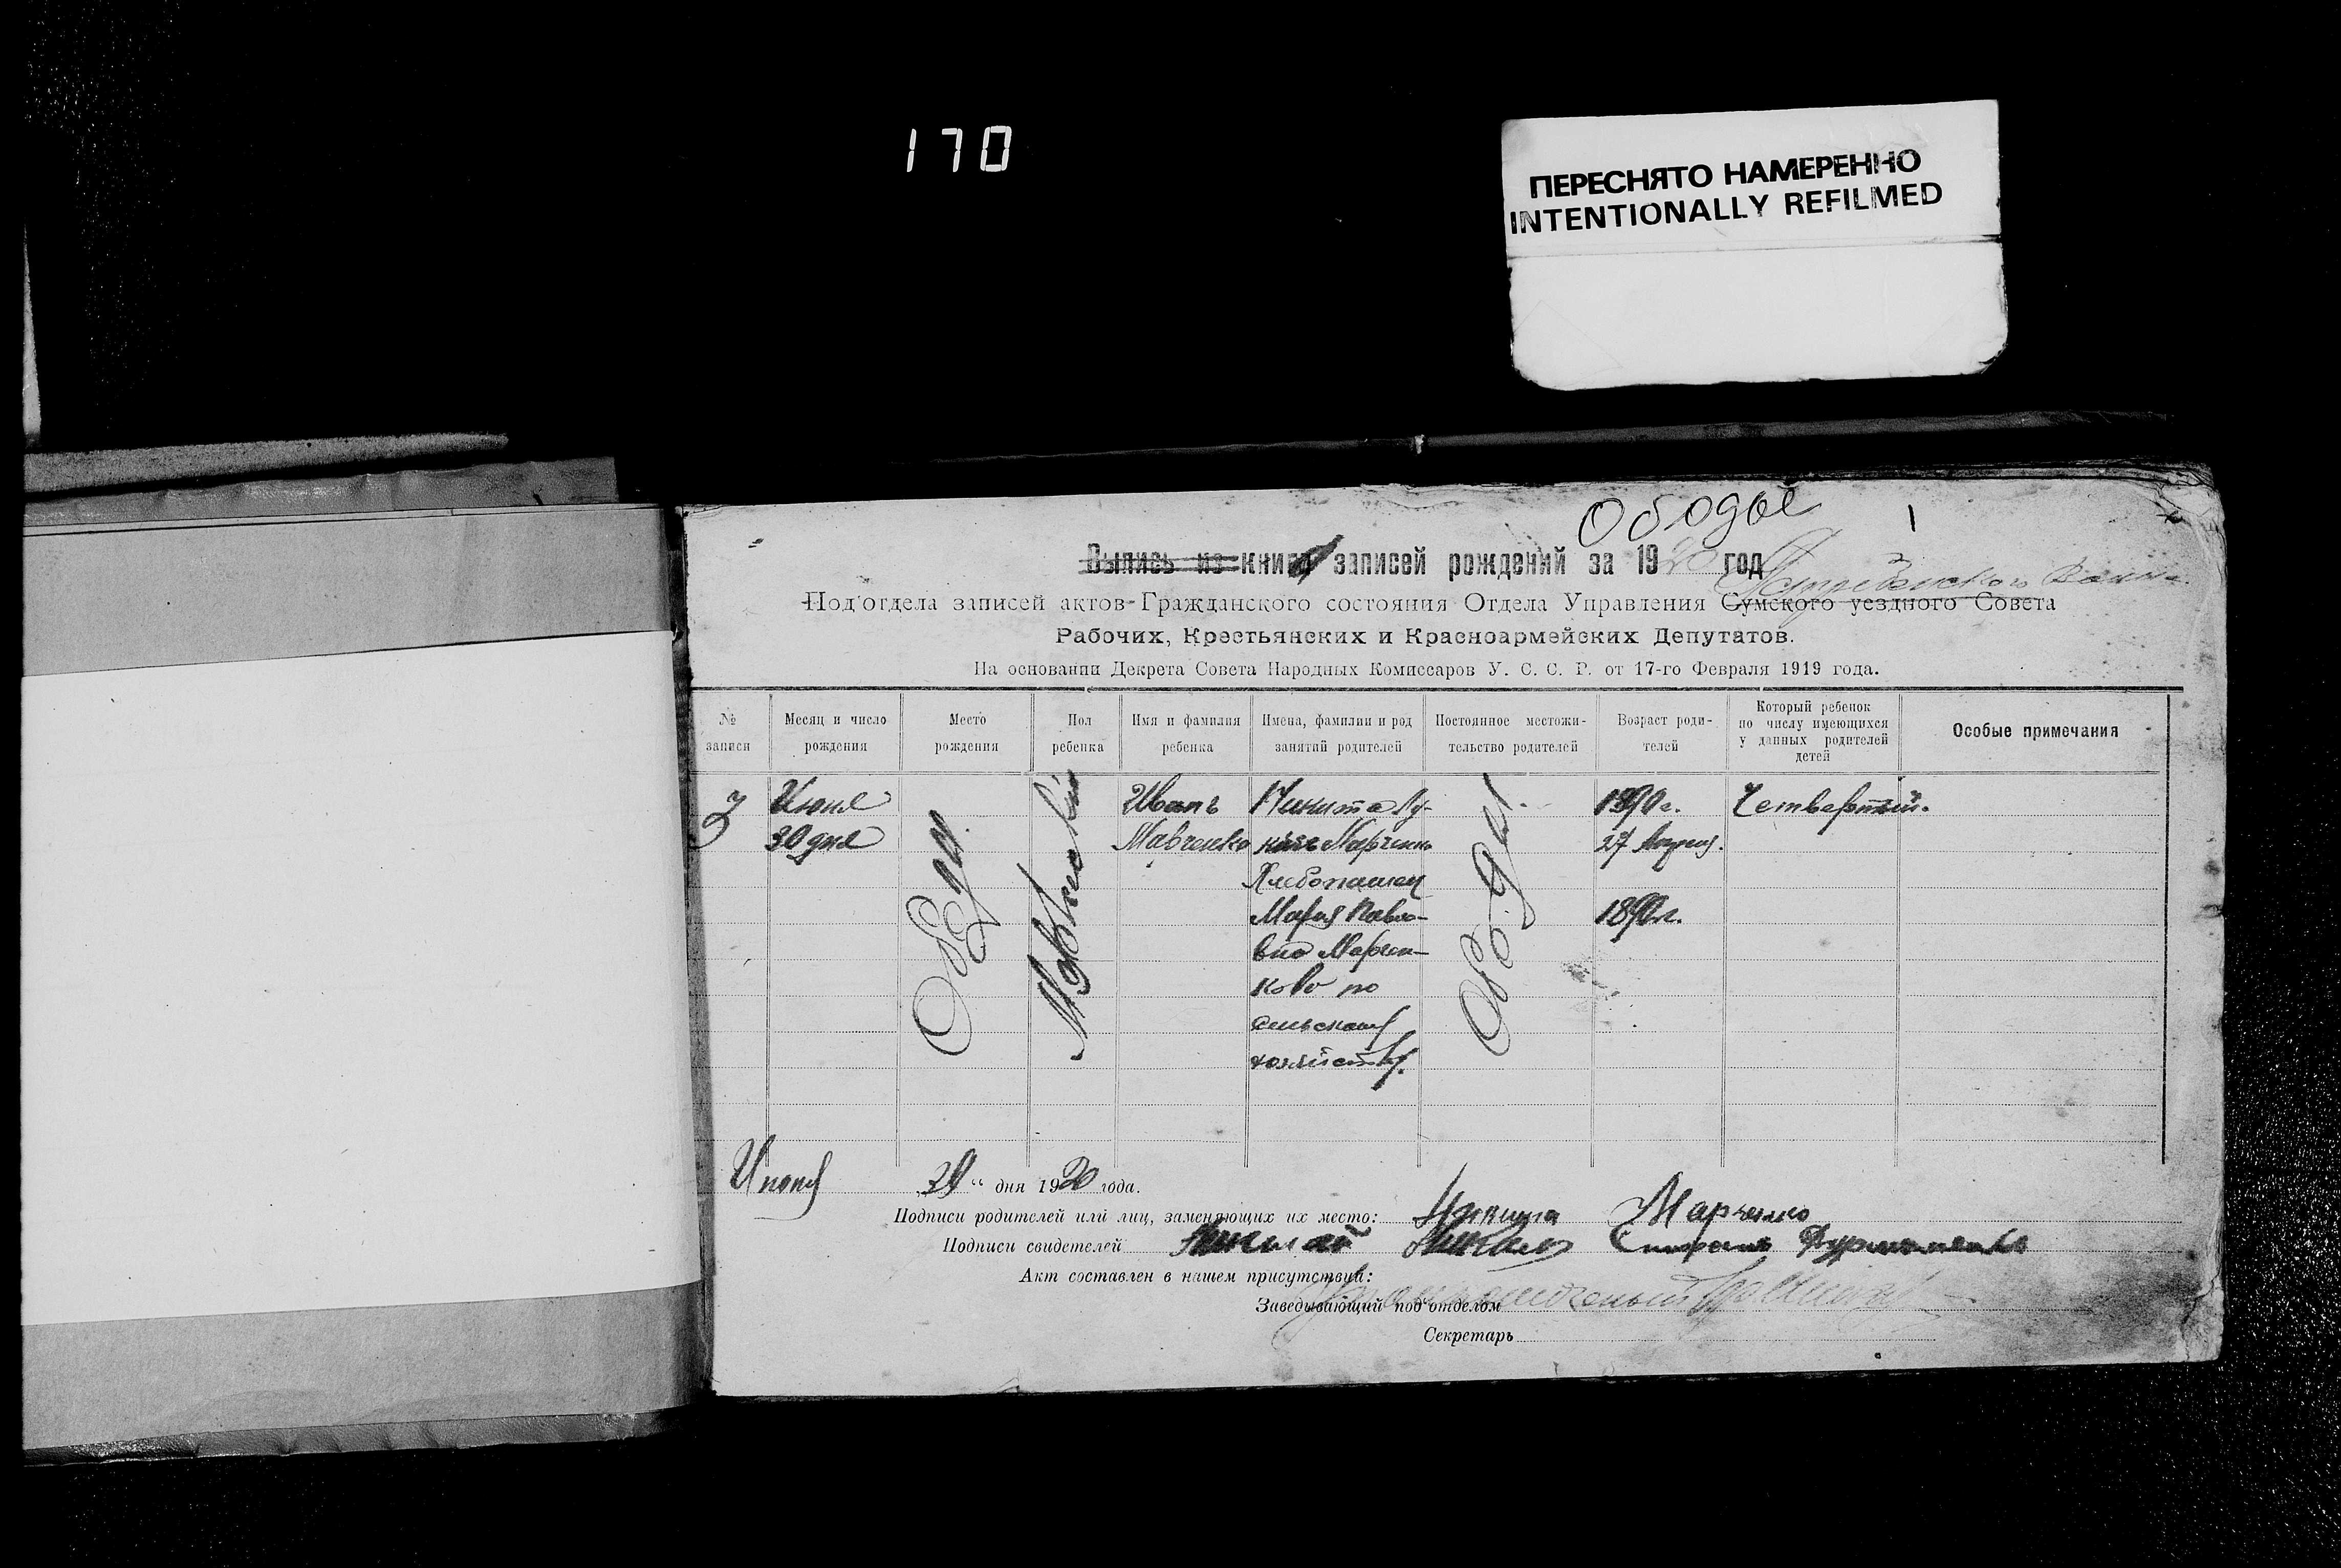 170
ПЕРЕСНЯТО НАМЕРЕННО
INTENTIONALLY REFILMED
Ободы
1
Выпись из книги записей рождений за 1920 год
Под'отдела записей актов Гражданского состояния Отдела Управления Сумского уездного Совета
Рабочих, Крестьянских и Красноармейских Депутатов.
На основании Декрета Совета Народных Комиссаров У. С. С. Р. от 17-го Февраля 1919 года.
№ записи
Месяц и число рождения
Место рождения
Пол ребенка
Имя и фамилия ребенка
Имена, фамилии и род занятий родителей
Постоянное местожительство родителей
Возраст родителей
Который ребенок по числу имеющихся у данных родителей детей
Особые примечания
Июня
30 дня
Ободы
Мужский
Иванъ
Марченко
Никита Лу-
Марченко
Хлебопашец
Мария Павло-
вна Марчен-
кова по
сельскому
хозяйству.
Ободы.
27 Апреля.
Четвертый.
дня 1920 года.
Подписи родителей или лиц, заменяющих их место: Никита Марченко
Подписи свидетелей Николай
Акт составлен в нашем присутствии:
Заведывающий под'отделом
Секретарь